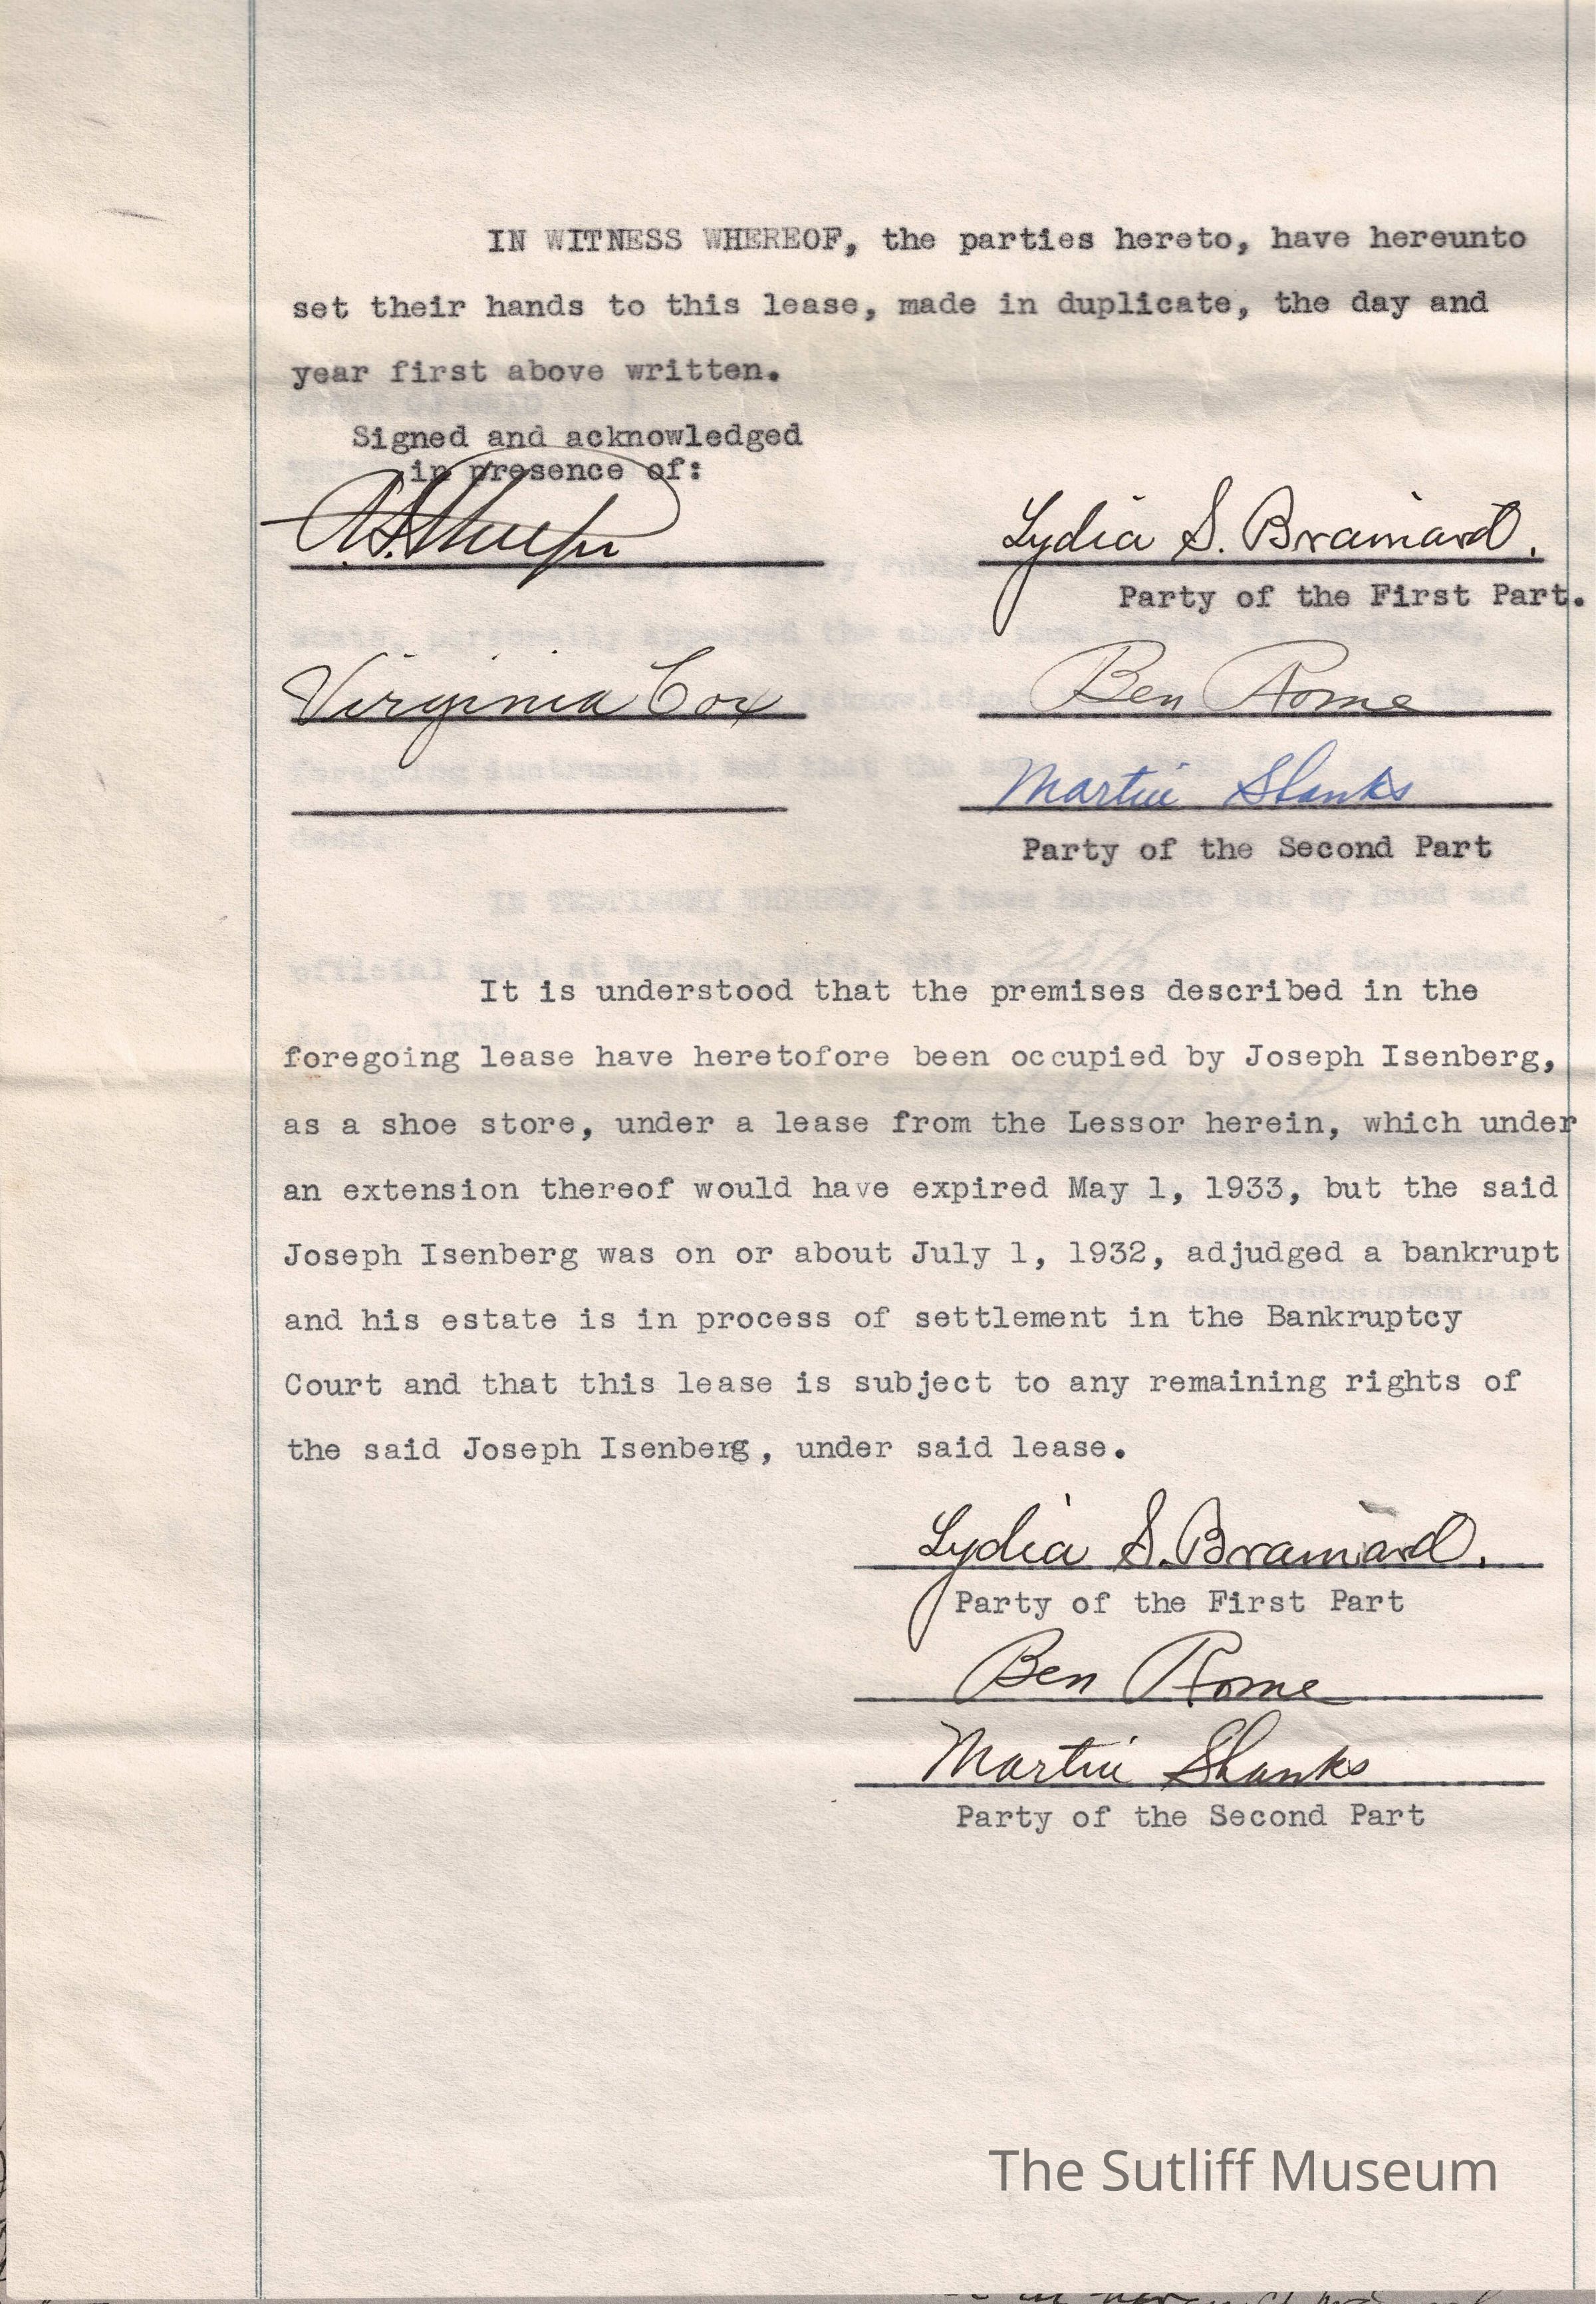 IN WITNESS WHEREOF, the parties hereto, have hereunto
set their hands to this lease, made in duplicate, the day and
year first above written.
Signed and acknowledged
in presence of:
Lydia S. Brainard.
Party of the First Part.
Virginia Cox
Ben Rome
Martin Shanks
Party of the Second Part
IN TESTIMONY WHEREOF, I have hereunto set my hand and
official seal at Warren, Ohio, this 28th day of September,
It is understood that the premises described in the
foregoing lease have heretofore been occupied by Joseph Isenberg,
as a shoe store, under a lease from the Lessor herein, which under
an extension thereof would have expired May 1, 1933, but the said
Joseph Isenberg was on or about July 1, 1932, adjudged a bankrupt
and his estate is in process of settlement in the Bankruptcy
Court and that this lease is subject to any remaining rights of
the said Joseph Isenberg, under said lease.
Lydia S. Brainard.
Party of the First Part
Ben Rome
Martin Shanks
Party of the Second Part
The Sutliff Museum